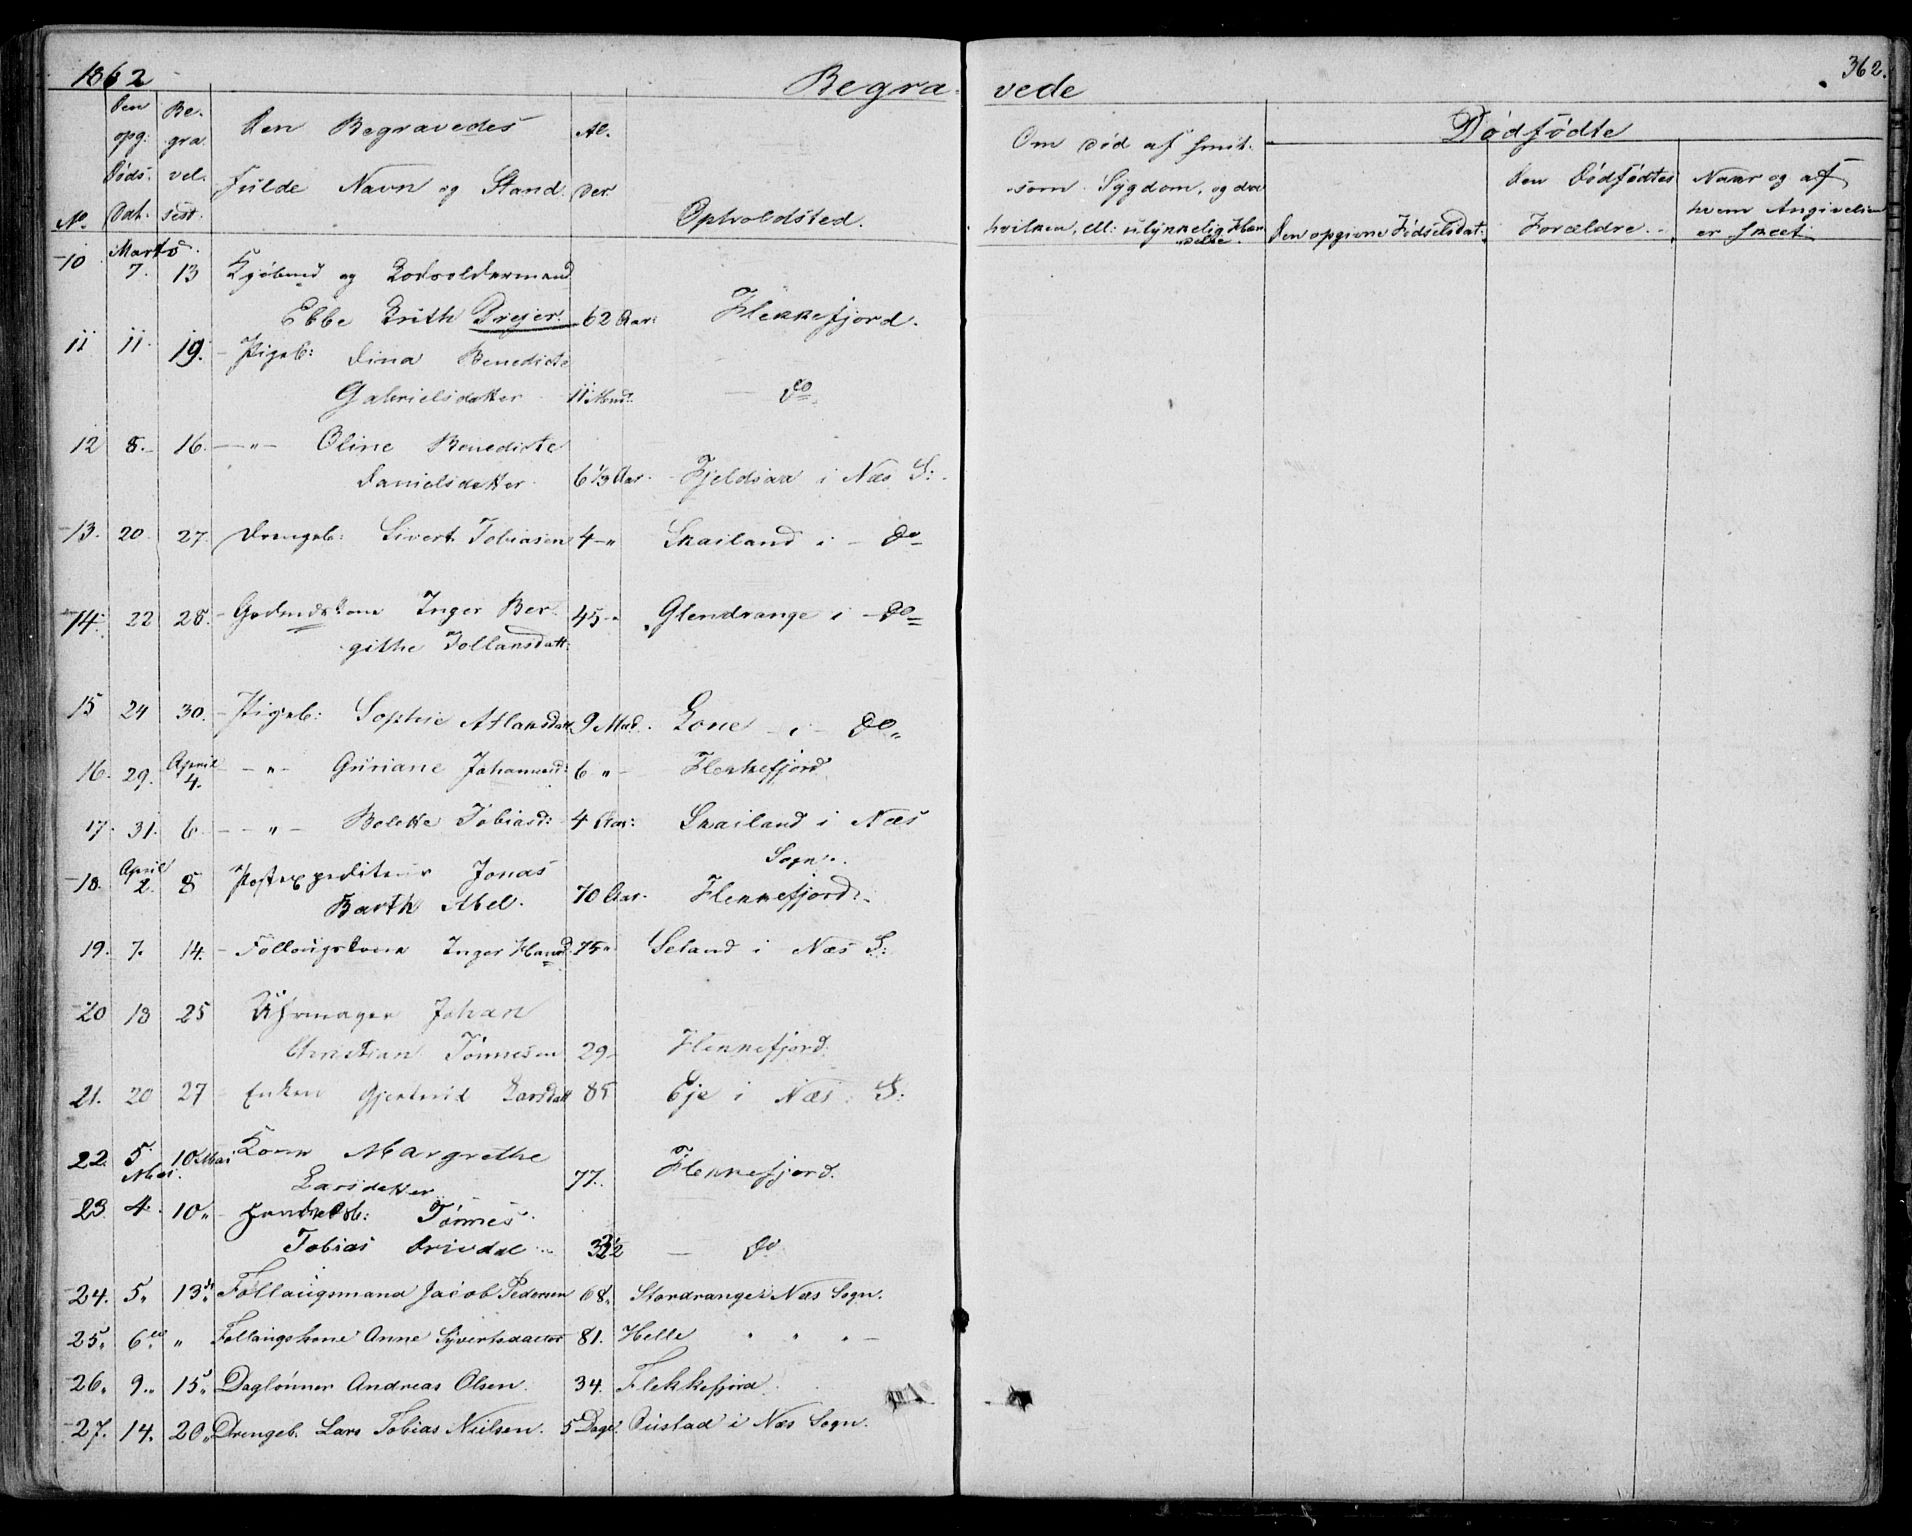 1862
Begravede
362.
No.
Den opg: Døds. Dat.
Begravelsest:
Den Begravedes
Fulde Navn og Stand.
Alder
Opholdsted.
Om død af smitsom Sygdom, og da
hvilken, ell: ulykkelig Hændelse.
Dødfødte
Den opgivne Fødselsdat:
Den Dødfødtes
Forældre.
Naar og af
hvem Angivelsen
er skeet
10 Marts 7. 13 Kjøbmd og Lodsoldermand
Ebbe Drejer. 62 Aar: Flekkefjord.
11 11. 19. Pigeb: Dina Benedicte
Gabrielsdatter 11 Mnd: - do
12 8. 16. - " - Oline Benedicte
Danielsdatter 6 1/3 Aar. Fjeldsaa i Næs S:
13. 20. 27. Drengeb: Sivert Tobiasen 4 - " Skailand i - do
14. 22 28. Inger Ber
githe Tollaksdatt: 45 - " Glendrange i - do
15 24 30. Pigeb: Sophie Atlaksdatt 9 Mnd. Lone - i - do "
16. 29. April 4. - " - Guriane Johannesd: 6 " - Flekkefjord
17. 31. 6. - " - Bolette Tobiasd: 4 Aar: Skailand i Næs
Sogn.
18. April 2. 8 Postexpediteur Jonas
Barth Abel. 70 Aar. Flekkefjord.
19. 7. 14. - Føllaugskone Inger Hansd 75 " Seland i Næs S:
20 18 25 Uhrmager Johan
Christian Tønnesen 29 - Flekkefjord.
21. 20 27 - Enken Gjertrud Larsdatt 85 Eje i Næs S:
22. 5 Mai. 10 Mai Kone Margrethe
Larsdatter 77. Flekkefjord.
23. 4. 10 " Tønnes
Tobias - do
24. 5. 13 de Føllaugsmand Jacob Pedersen 68. Stordrange i Næs Sogn.
25. 6. " Føllaugskone Anne Syvertsdatter 81. Helle " " " -
26. 9. 15. Daglønner Andreas Olsen. 34. Flekkefjord.
27. 14. 20. Drengeb. Lars Tobias Nielsen. 5 Dage. Øustad i Næs Sogn.